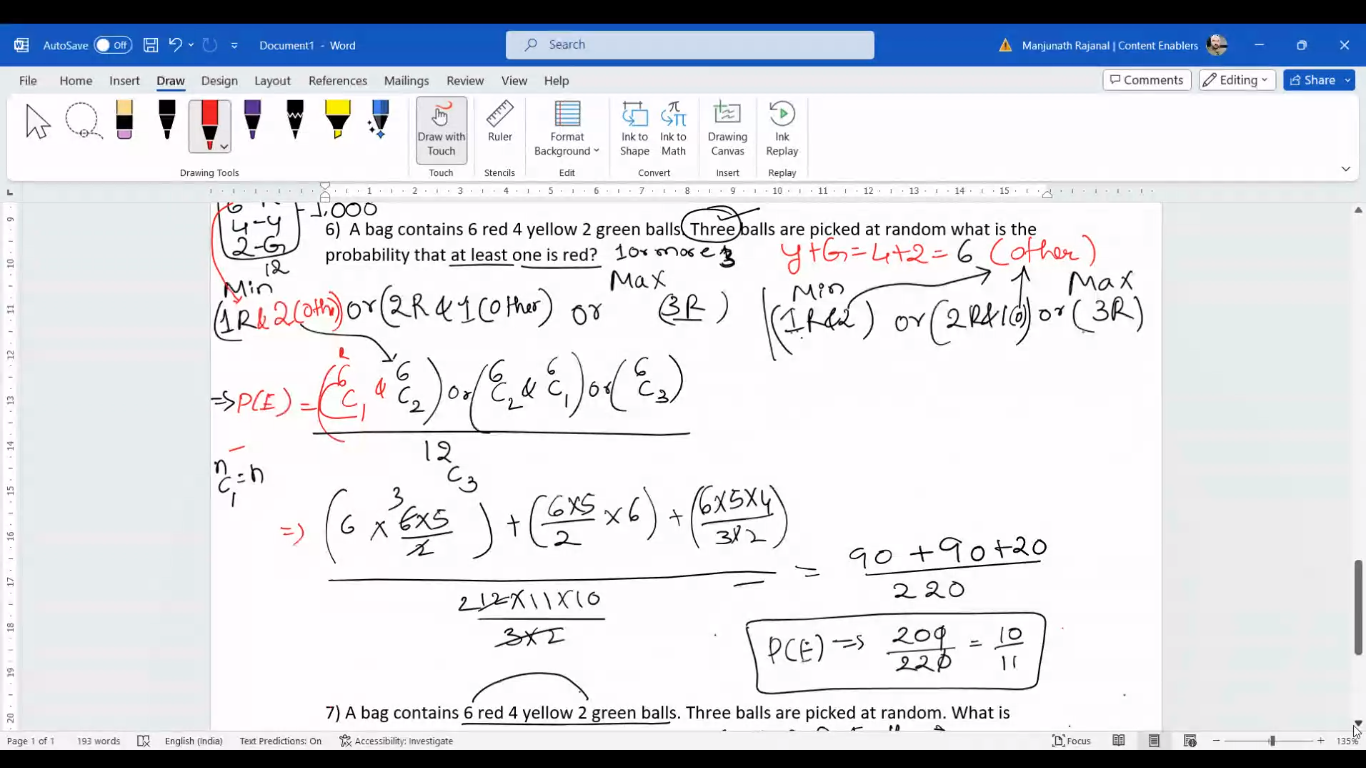 AutoSave Off Document1 - Word Search Manjunath Rajanal | Content Enablers
File Home Insert Draw Design Layout References Mailings Review View Help Comments Editing Share
Draw with Touch Ruler Format Background Ink to Shape Ink to Math Drawing Canvas Ink Replay
Drawing Tools Touch Stencils Edit Convert Insert Replay
1 2 3 4 5 6 7 8 9 10 11 12 13 14 15
1,000
4-Y
2-G
12
6) A bag contains 6 red 4 yellow 2 green balls. Three balls are picked at random what is the
probability that at least one is red? 1 or more 3
Y+G=4+2=6 (other)
Min Max
(1R & 2(Oth) or (2R & 1(Other) or (3R)
Min Max
(1R&2) or (2R&1(O) or (3R)
=> P(E) = (6C1 & 6C2) or (6C2 & 6C1) or (6C3)
12C3
nC1=n
=> (6 × 3 6×5/2) + (6×5/2 × 6) + (6×5×4/3×2)
2 12×11×10
3×2
= 90+90+20
220
P(E) => 200/220 = 10/11
7) A bag contains 6 red 4 yellow 2 green balls. Three balls are picked at random. What is
9 10 11 12 13 14 15 16 17 18 19 20
Page 1 of 1 193 words English (India) Text Predictions: On Accessibility: Investigate Focus 135%